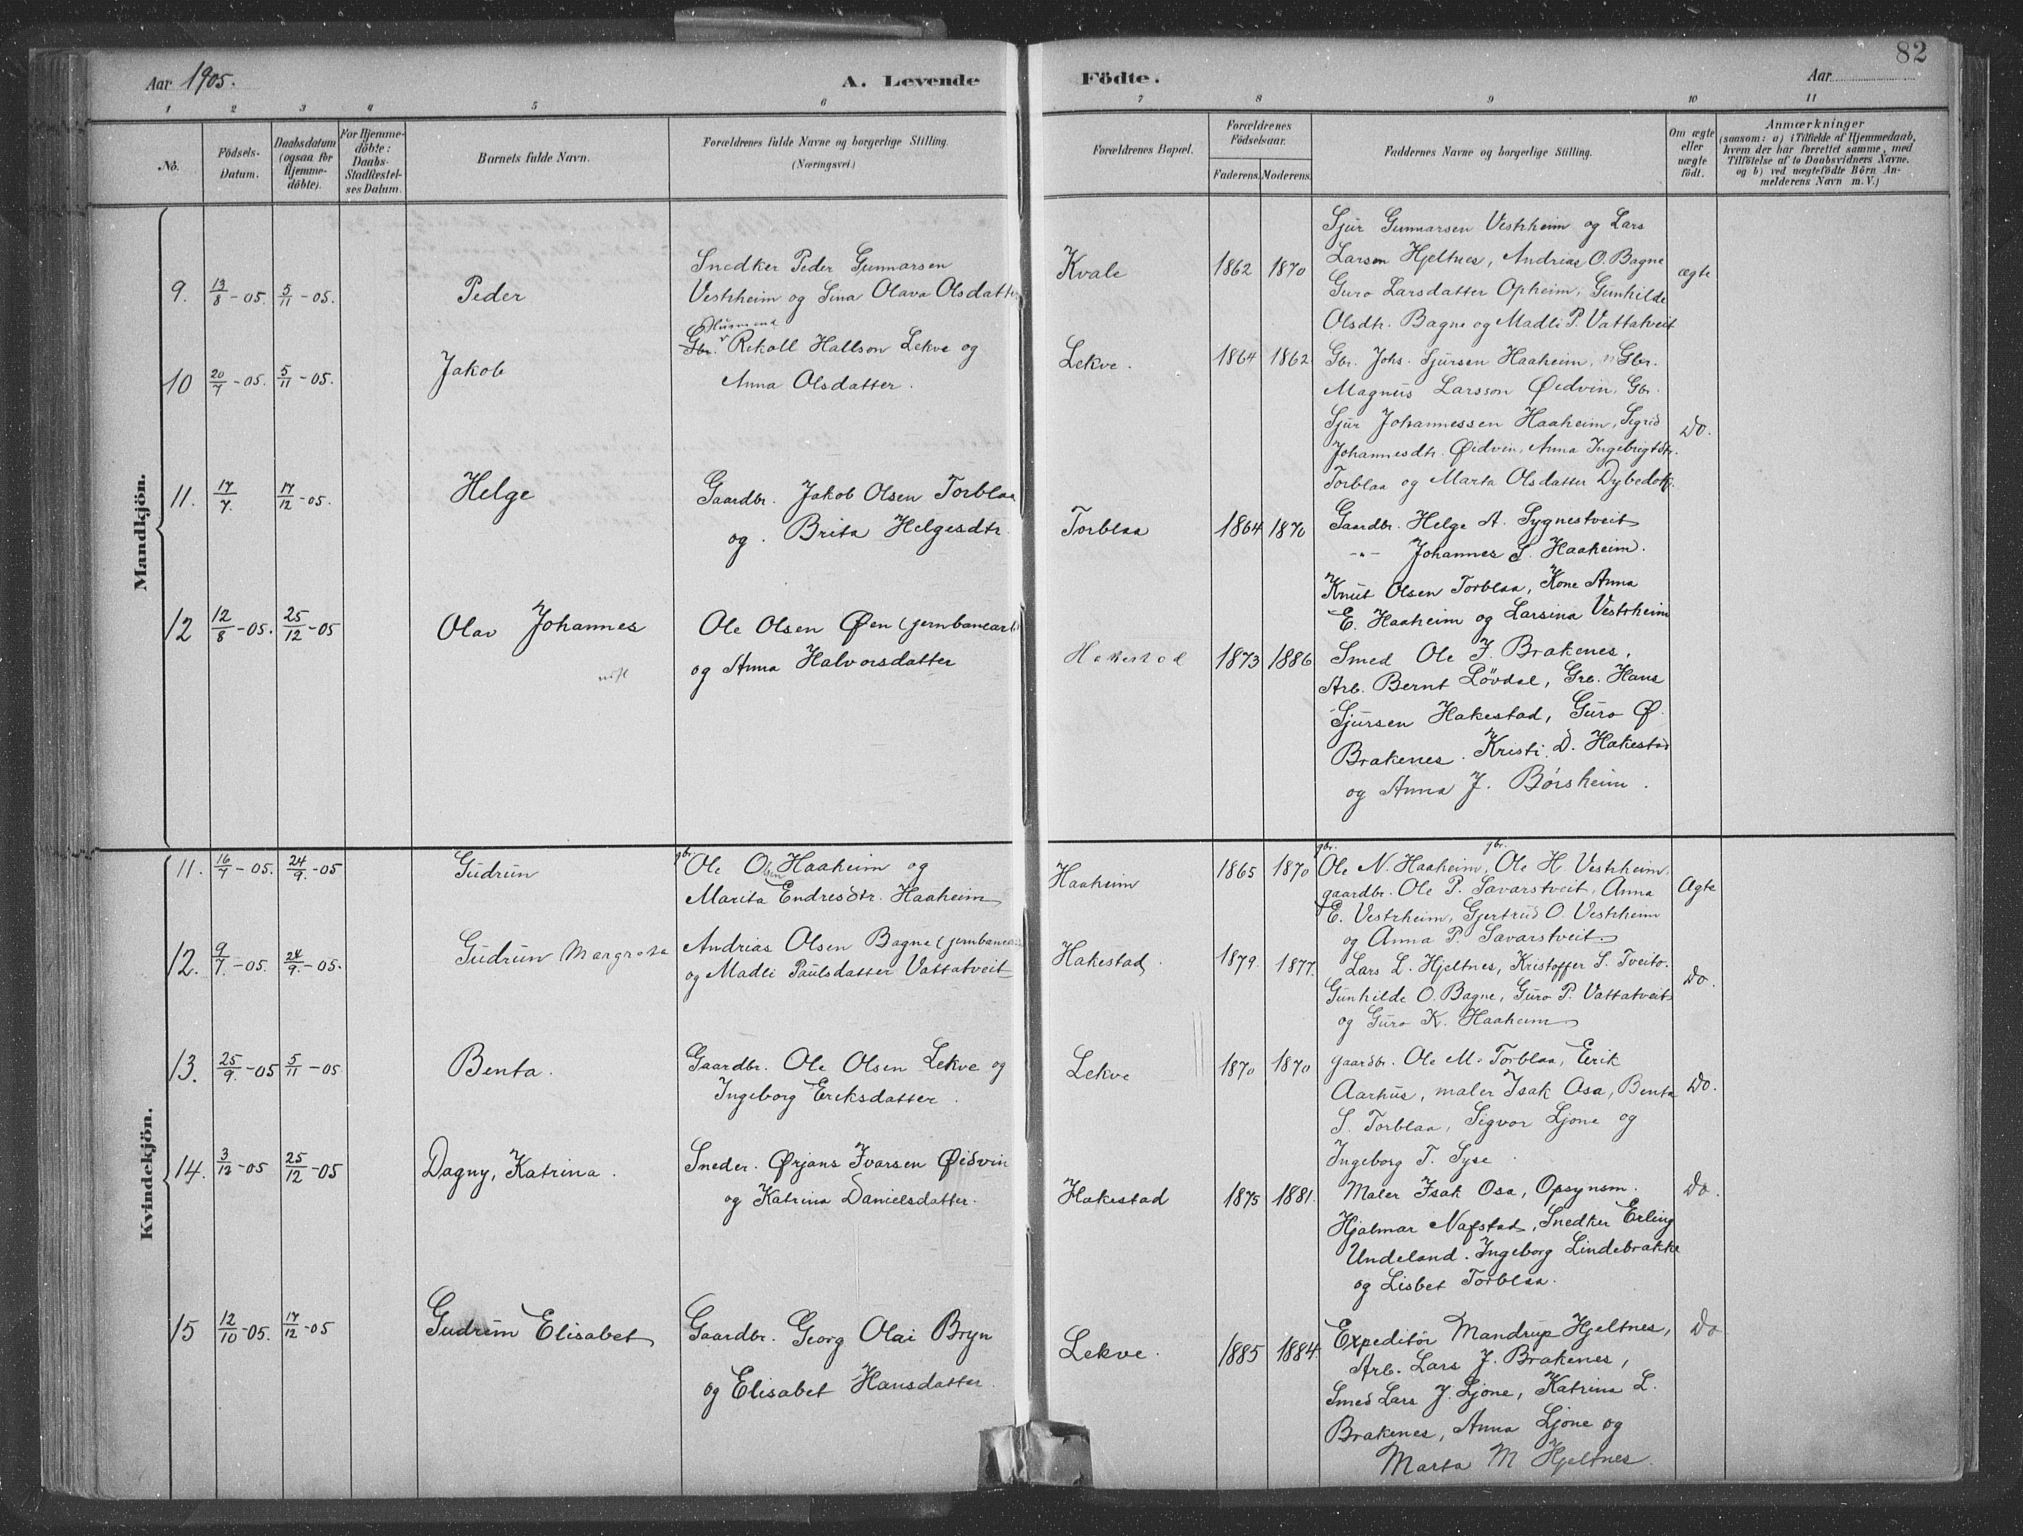 82
Aar 1905.
A. Levende Födte.
Aar
1 2 3 4 5 6 7 8 9 10 11
No.
Födsels-Datum.
Daabsdatum (ogsaa for Hjemme-döbte).
For Hjemme-döbte: Daabs-Stadfæstel-ses Datum.
Barnets fulde Navn.
Forældrenes fulde Navne og borgerlige Stilling. (Næringsvei.)
Forældrenes Bopæl.
Forældrenes Födselsaar.
Faderens. Moderens.
Faddernes Navne og borgerlige Stilling.
Om ægte eller uægte födt.
Anmærkninger
(saasom: a) i Tilfælde af Hjemmedaab,
hvem der har forrettet samme, med
Tilföielse af to Daabsvidners Navne.
og b) ved uægtefödte Börn An-
melderens Navn m. V.)
Mandkjön.
9. 13/8-05. 5/11-05. Peder
Snedker Peder Gunnarsen
Vestrheim og Sina Olava Olsdatter
Kvale 1862 1870
Sjur Gunnarsen Vestrheim og Lars
Larsen Hjeltnes, Andrias O. Bagne
Guro Larsdatter Opheim, Gunhilde
Olsdtr. Bagne og Madli P. Vattatveit
ægte
10 20/7-05. 5/11-05. Jakob
Husmand
Gbr. Rikoll Hallson Lekve og
Anna Olsdatter.
Lekve. 1864 1862
Gbr. Johs. Sjursen Haaheim, Gbr.
Magnus Larsson Øidvin, Gbr.
Sjur Johannessen Haaheim, Sigrid
Johannesdtr. Øidvin, Anna Ingebrigtsdtr.
Torblaa og Marta Olsdatter
Do.
11. 17/7. 17/12-05. Helge
Gaardbr. Jakob Olsen Torblaa
og Brita Helgesdtr.
Torblaa 1864 1870
Gaardbr. Helge A. Sygnestveit
-"- Johannes S. Haaheim.
Knut Olsen Torblaa, Kone Anna
E. Haaheim og Larsina Vestrheim
12 12/8-05. 25/12-05 Olav Johannes
Ole Olsen Øen (jernbanearb.
og Anna Halvorsdatter
Hakestad 1873 1886
Smed Ole J. Brakenes,
Arb. Bernt Løvdal, Grb. Hans
Sjursen Hakestad, Guro Ø.
Brakenes. Kristi D. Hakestad
og Anna J. Børsheim.
Kvindekjön.
11. 16/7-05. 24/9-05 Gudrun
gbr. Ole Olsen Haaheim og
Marita Endresdtr. Haaheim
Haaheim 1865 1870
gbr. gbr.
Ole N. Haaheim, Ole H. Vestrheim,
gaardbr. Ole P. Savarstveit, Anna
E. Vestrheim, Gjertrud O. Vestrheim
og Anna P. Savarstveit
Ægte
12. 9/7-05. 24/9-05. Gudrun Margreta
Andrias Olsen Bagne (jernbanearb.
og Madli Paulsdatter Vattatveit
Hakestad. 1879. 1877.
Lars L. Hjeltnes, Kristoffer S. Tveito.
Gunhilde O. Bagne, Guro P. Vattatveit
og Guro K. Haaheim
Do.
13. 25/9-05 5/11-05 Benta.
Gaardbr. Ole Olsen Lekve og
Ingeborg Eriksdatter.
Lekve 1870 1870
gaardbr. Ole M. Torblaa, Erik
Aarhus, maler Isak Osa, Benta
S. Torblaa, Sigvor Ljone og
Ingeborg T. Syse.
Do.
14. 3/12-05 25/12-05 Dagny, Katrina.
Sneder. Ørjans Ivarsen Øidvin
og Katrina Danielsdatter.
Hakestad 1875 1881.
Maler Isak Osa, Opsynsm.
Hjalmar Nafstad, Snedker Erling
Undeland. Ingeborg Lindebrække
og Lisbet Torblaa.
Do.
15 12/10-05. 17/12-05 Gudrun Elisabet
Gaardbr. Georg Olai Bryn
og Elisabet Hansdatter.
Lekve. 1885 1884.
Expeditör Mandrup Hjeltnes,
Arb. Lars J. Brakenes,
Smed Lars J. Ljone, Katrina L.
Brakenes, Anna Ljone og
Marta M Hjeltnes.
Do